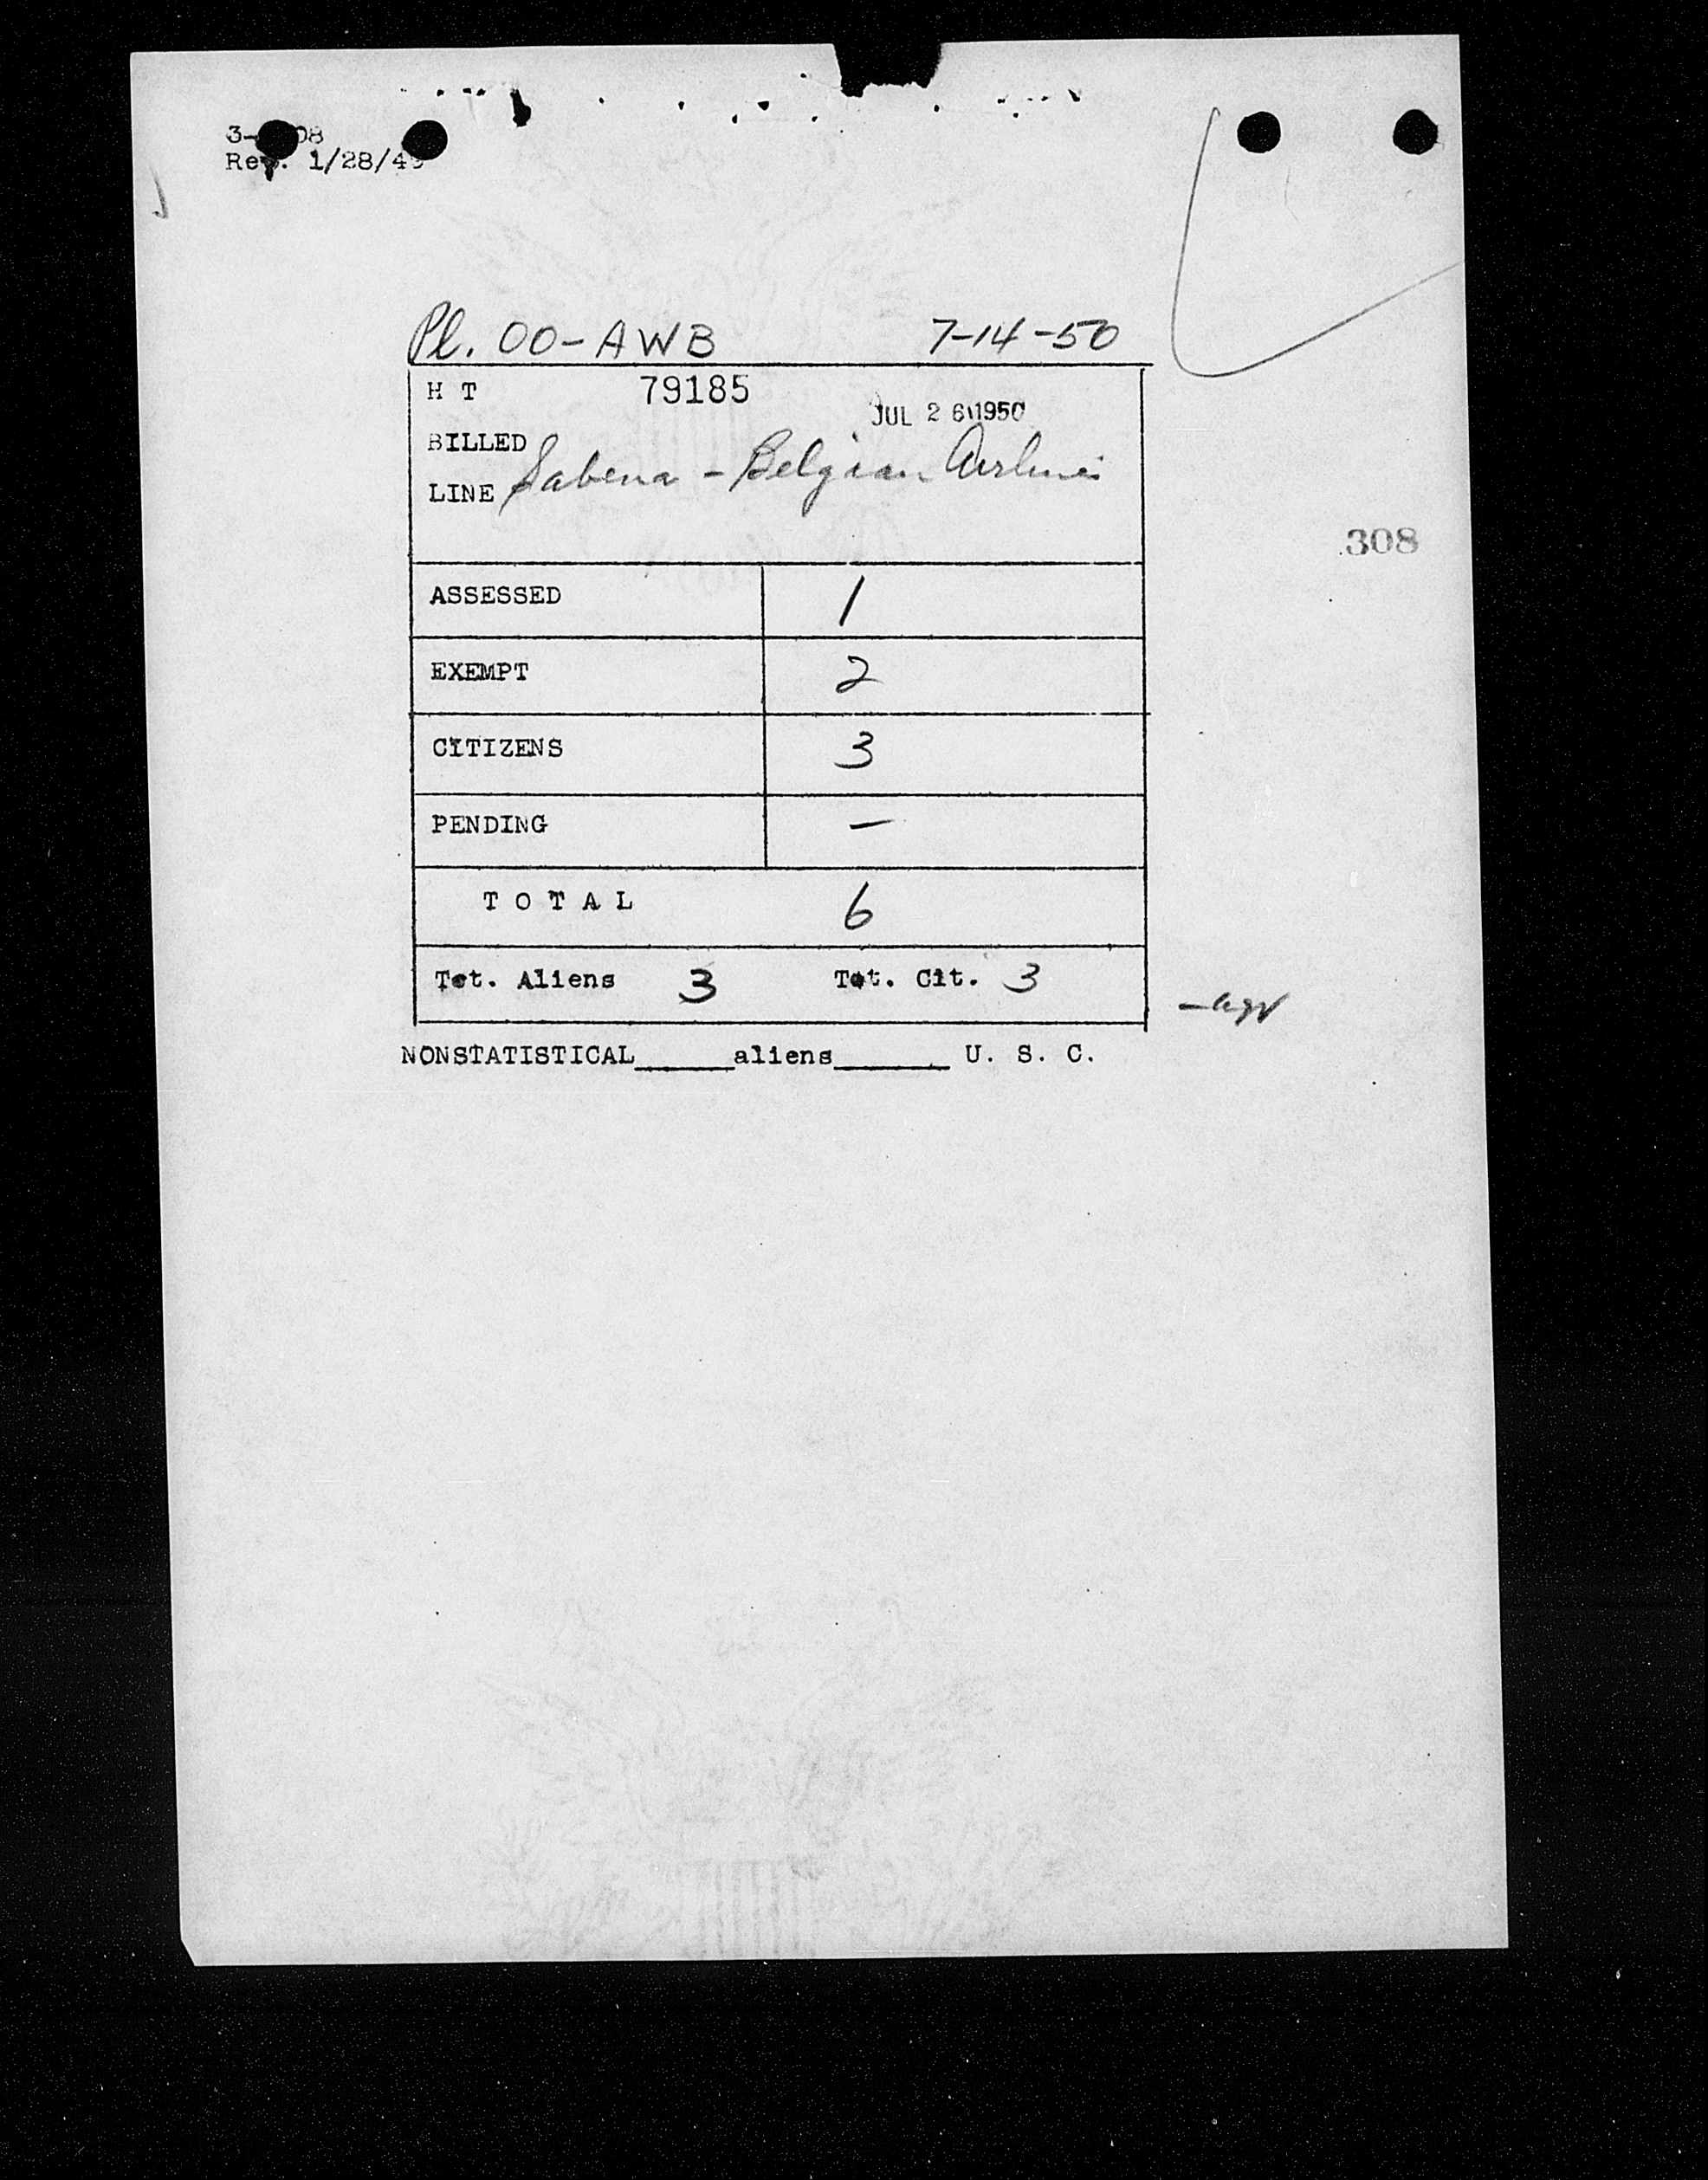 Rev. 1/28/4
Pl. OO-AWB 7-14-50
H T 79185
JUL 26 1950
BILLED
LINE Sabena - Belgian Airlines
308
ASSESSED 1
EXEMPT 2
CITIZENS 3
PENDING —
T O T A L 6
Tot. Aliens 3 Tot. Cit. 3
NONSTATISTICAL_____aliens______ U. S. C.